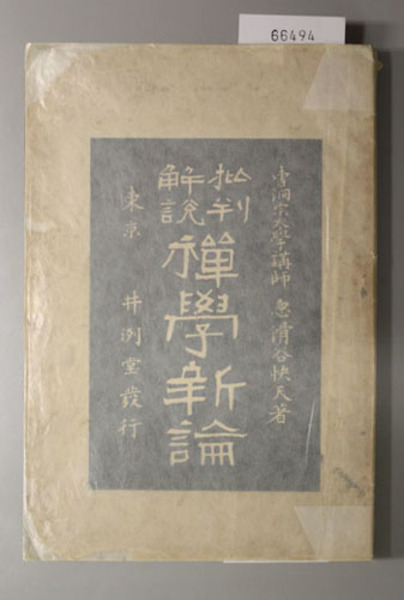 66494
曹洞宗大學講師 忽滑谷快天著
批判
解説
禪學新論
東京 井洌堂發行